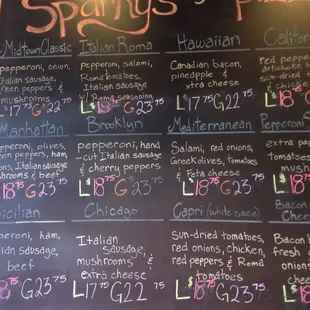 Sparky's
Midtown Classic
pepperoni, onion,
Italian sausage,
green peppers &
mushrooms
$17.75 G22.75
Italian Roma
pepperoni, salami,
Roma tomatoes,
Italian sausage
w/ Roma seasoning
L$18.75 G23.75
Hawaiian
Canadian bacon,
pineapple &
extra cheese
L$17.75 G22.75
Califor
red pepper
artichoke
sun-dried
& chick
L$18.75 G
Manhattan
peroni, olives,
ham,
Italian sausage
mushrooms & beef
18.75 G23.75
Brooklyn
pepperoni, hand
-cut Italian sausage
& cherry peppers
L$18.75 G23.75
Mediterranean
Salami, red onions,
Greek olives, tomatoes
& Feta cheese
L$18.75 G23.75
Pepperoni S
extra pep
tomatoes
mush
L$18.75
Sicilian
peroni, ham,
lian sausage,
beef
8.75 G23.75
Chicago
Italian
sausage,
mushrooms &
extra cheese
L17.75 G22.75
Capri (white sauce)
Sun-dried tomatoes,
red onions, chicken,
red peppers & Roma
tomatoes
L$18.75 G23.75
Bacon
Chee
Bacon
fresh
onions
chee
L$18.75